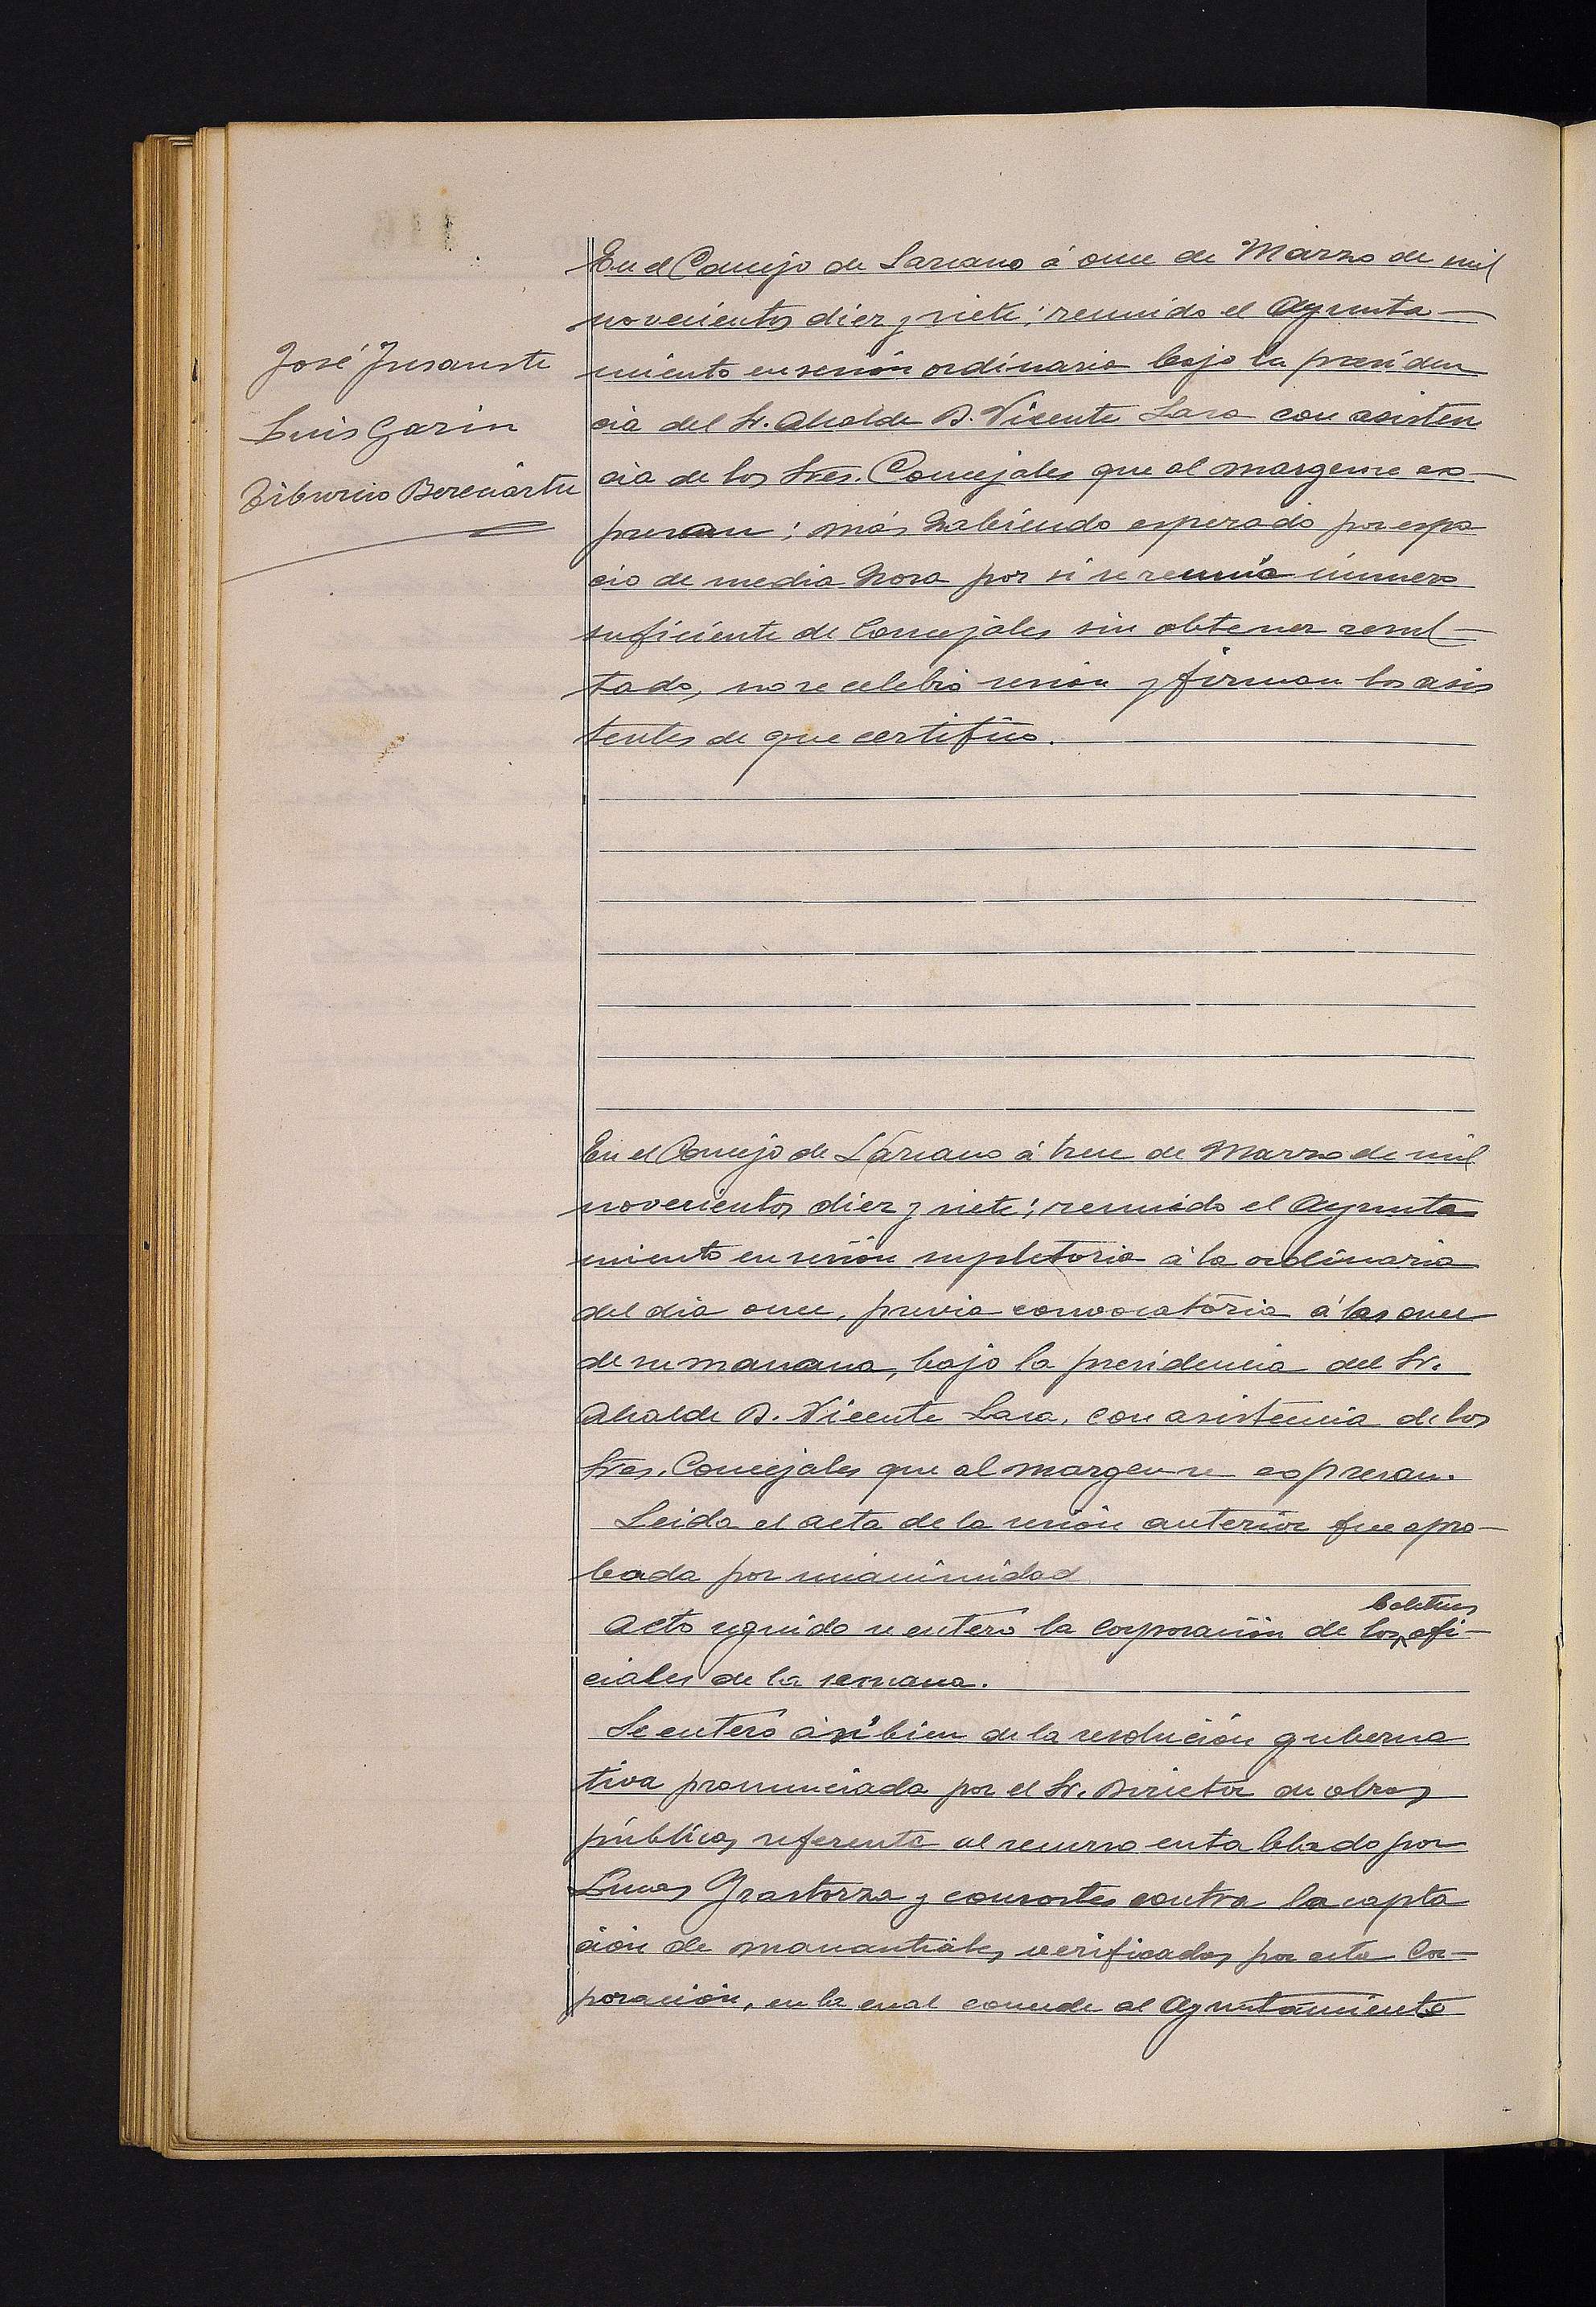 José Insausti
Luis Garin
Tiburcio Bereciartu
En el Concejo de Lazcano á once de Marzo de mil
novecientos diez y siete; reunido el Ayunta-
miento en sesión ordinaria bajo la presiden
cia del Sr. Alcalde D. Vicente Lasa con asisten
cia de los Sres. Concejales que al margen se ex-
presan; más habiendo esperado por espa
cio de media hora por si se reunía número
suficiente de Concejales sin obtener resul-
tado, no se celebró sesión y firman los asis
tentes de que certifico.
En el Concejo de Lazcano á trece de Marzo de mil
novecientos diez y siete; reunido el Ayunta
miento en sesión supletoria á la ordinaria
del dia once, previa convocatoria á las once
de su manana, bajo la presidencia del Sr.
Alcalde D. Vicente Lasa, con asistencia de los
Sres. Concejales que al margen se expresan.
Leida el acta de la sesión anterior fue apro-
bada por unanimidad
Acto seguido se enteró la Corporación de los boletines ofi-
ciales de la semana.
Se enteró asi bien de la resolución guberna
tiva pronunciada por el Sr. Director de obras
públicas referente al recurso entablado por
Lucas Yrastorza y consortes contra la capta
ción de manantiales verificados por esta Cor-
poración, en la cual concede al Ayuntamiento